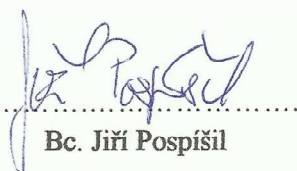 Jiří Pospíšil
Bc. Jiří Pospíšil